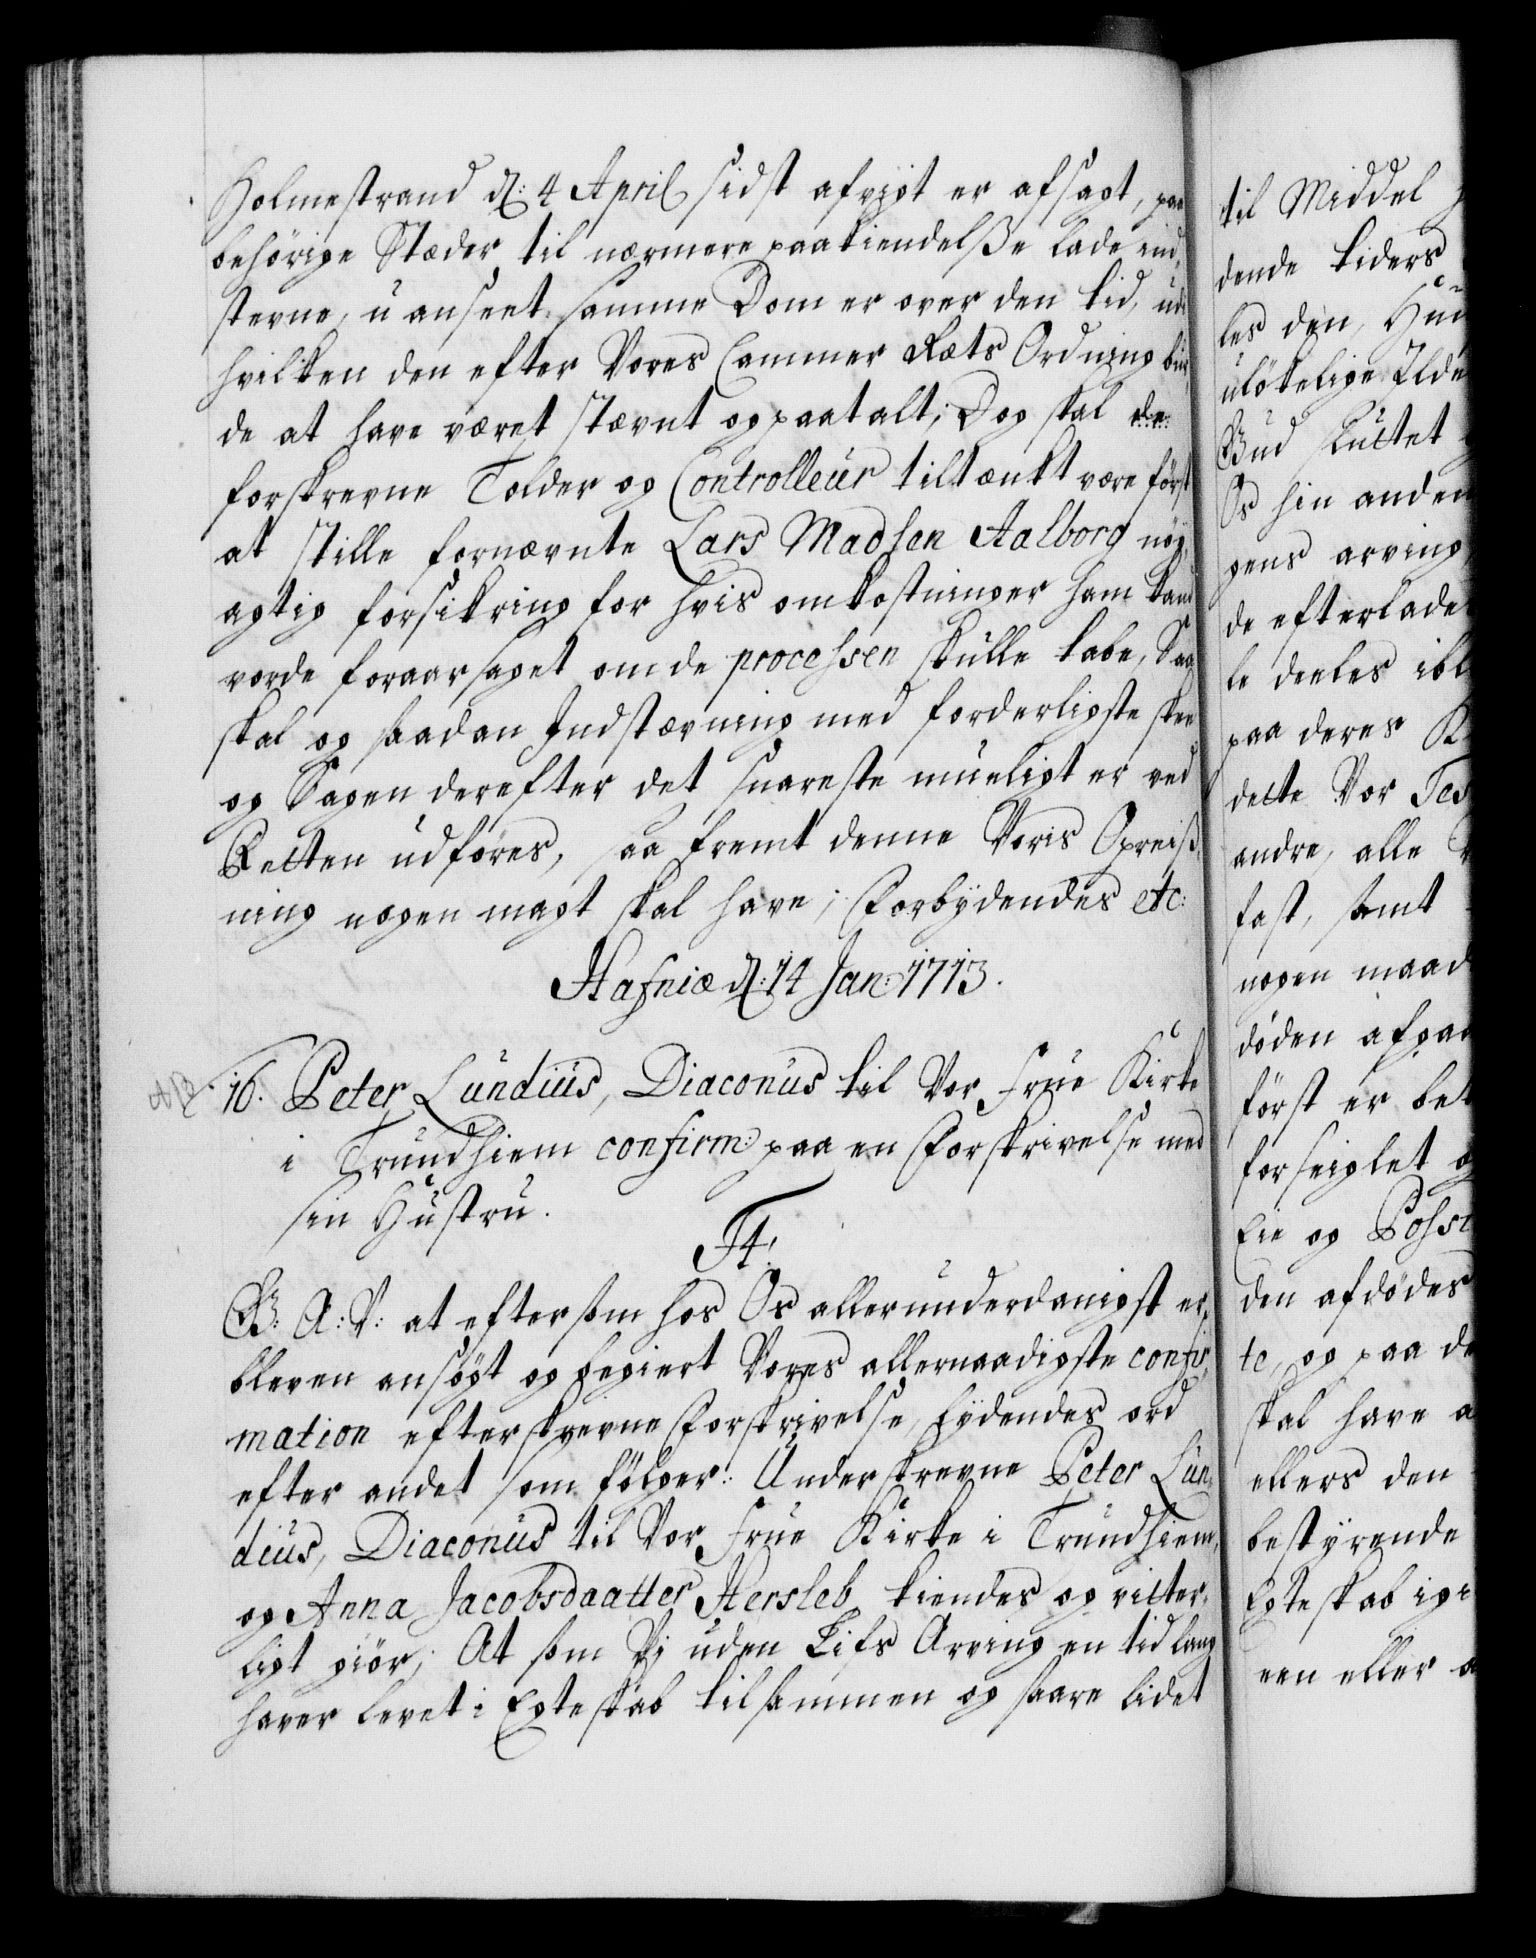 Holmestrand d: 4 April sidst afvigt er afsagt, paa
behörige Stæder til nærmere paakiendelsse lade ind,
stevne, u anseet samme Dom er over den tid, ud
hvilken den efter Vores Cammer Ræts Ordning bur,
de at have været stævnt og paatalt; Dog skal de
forskrevne Tolder og Controlleur tiltænkt være först
at stille fornævnte Lars Madsen Aalborg nöy,
agtig forsikring for hvis omkostninger ham kand
vorde foraarsaget om de processen skulle tabe, Saa
skal og saadan Indstævning med forderligste skee
og Sagen derefter det snareste mueligt er ved
Retten udföres, saa fremt denne Voris Opreiss,
ning nogen magt skal have; Forbydendes etc:
Hafniæ d: 14 Jan: 1713.
16. Peter Lundius, Diaconus til Vor Frue Kirke
i Trundhiem confirm: paa en Forskrivelse med
sin Hustru.
F4.
G: A: V: at eftersom hos Os allerunderdanigst er,
bleven ansögt og begiert Vores allernaadigste confir,
mation efterskrevne Forskrivelse, lydendes ord
efter andet som fölger: Underskrevne Peter Lun,
dius, Diaconus til Vor Frue Kirke i Trundhiem,
og Anna Jacobsdaatter Hersleb kiendes og vitter,
ligt giör; At som Vj uden Lifs Arving en tid lang
haver levet i Egteskab tilsammen og saare lidet
til Middel
dende tiders
les den, Hu
ulökelige Ilde
Gud sluttet
Os hin anden
gens arving
de efterlade
le deeles ibl
paa deres K
dette Vor Tes
andre, alle
fast, samt
nogen maad
döden afgaa
först er bet
forseiglet o
Eie og Posse
den afdödes
te, og paa de
skal have a
ellers den
bestyrende
Egteskab igi
een eller a